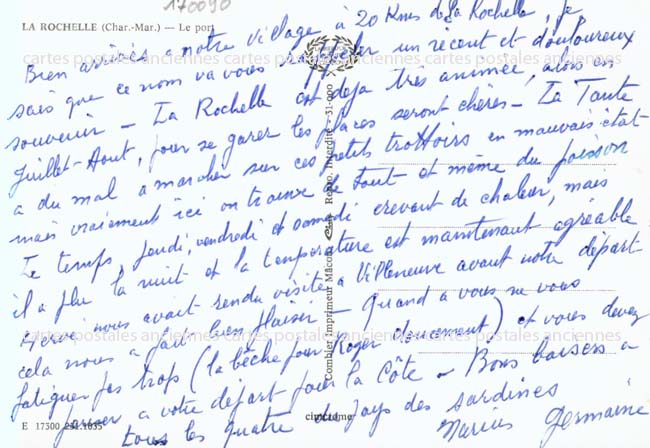 170090
LA ROCHELLE (Char.-Mar.) — Le port
Bien arrivés a notre village à 20 Kms de La Rochelle, je
sais que ce nom va vous rappeler un récent et douloureux
souvenir - La Rochelle est deja très animée, alors en
Juillet-Aout, pour se garer les places seront chères - La Tante
a du mal a marcher sur ces petits trottoirs en mauvais état
mais vraiement ici on trouve de tout et même du poisson
Le temps, jeudi, vendredi et samedi crevant de chaleur, mais
il a plu la nuit et la temperature est maintenant agréable
Hervé nous avait rendu visite a Villeneuve avant notre départ
cela nous a fait bien plaisir - Quand a vous ne vous
fatiguer pas trop (la bêche pour Roger doucement) et vous devez
penser a votre départ pour la Côte - Bons baisers a
tous les quatre du pays des sardines
Marius Germaine
Combier Imprimeur Mâcon
Repro. Interdite - 31-000
E 17300 251.1035
cim
cartes postales anciennes cartes postales anciennes cartes postales anciennes
cartes postales anciennes cartes postales anciennes cartes postales anciennes